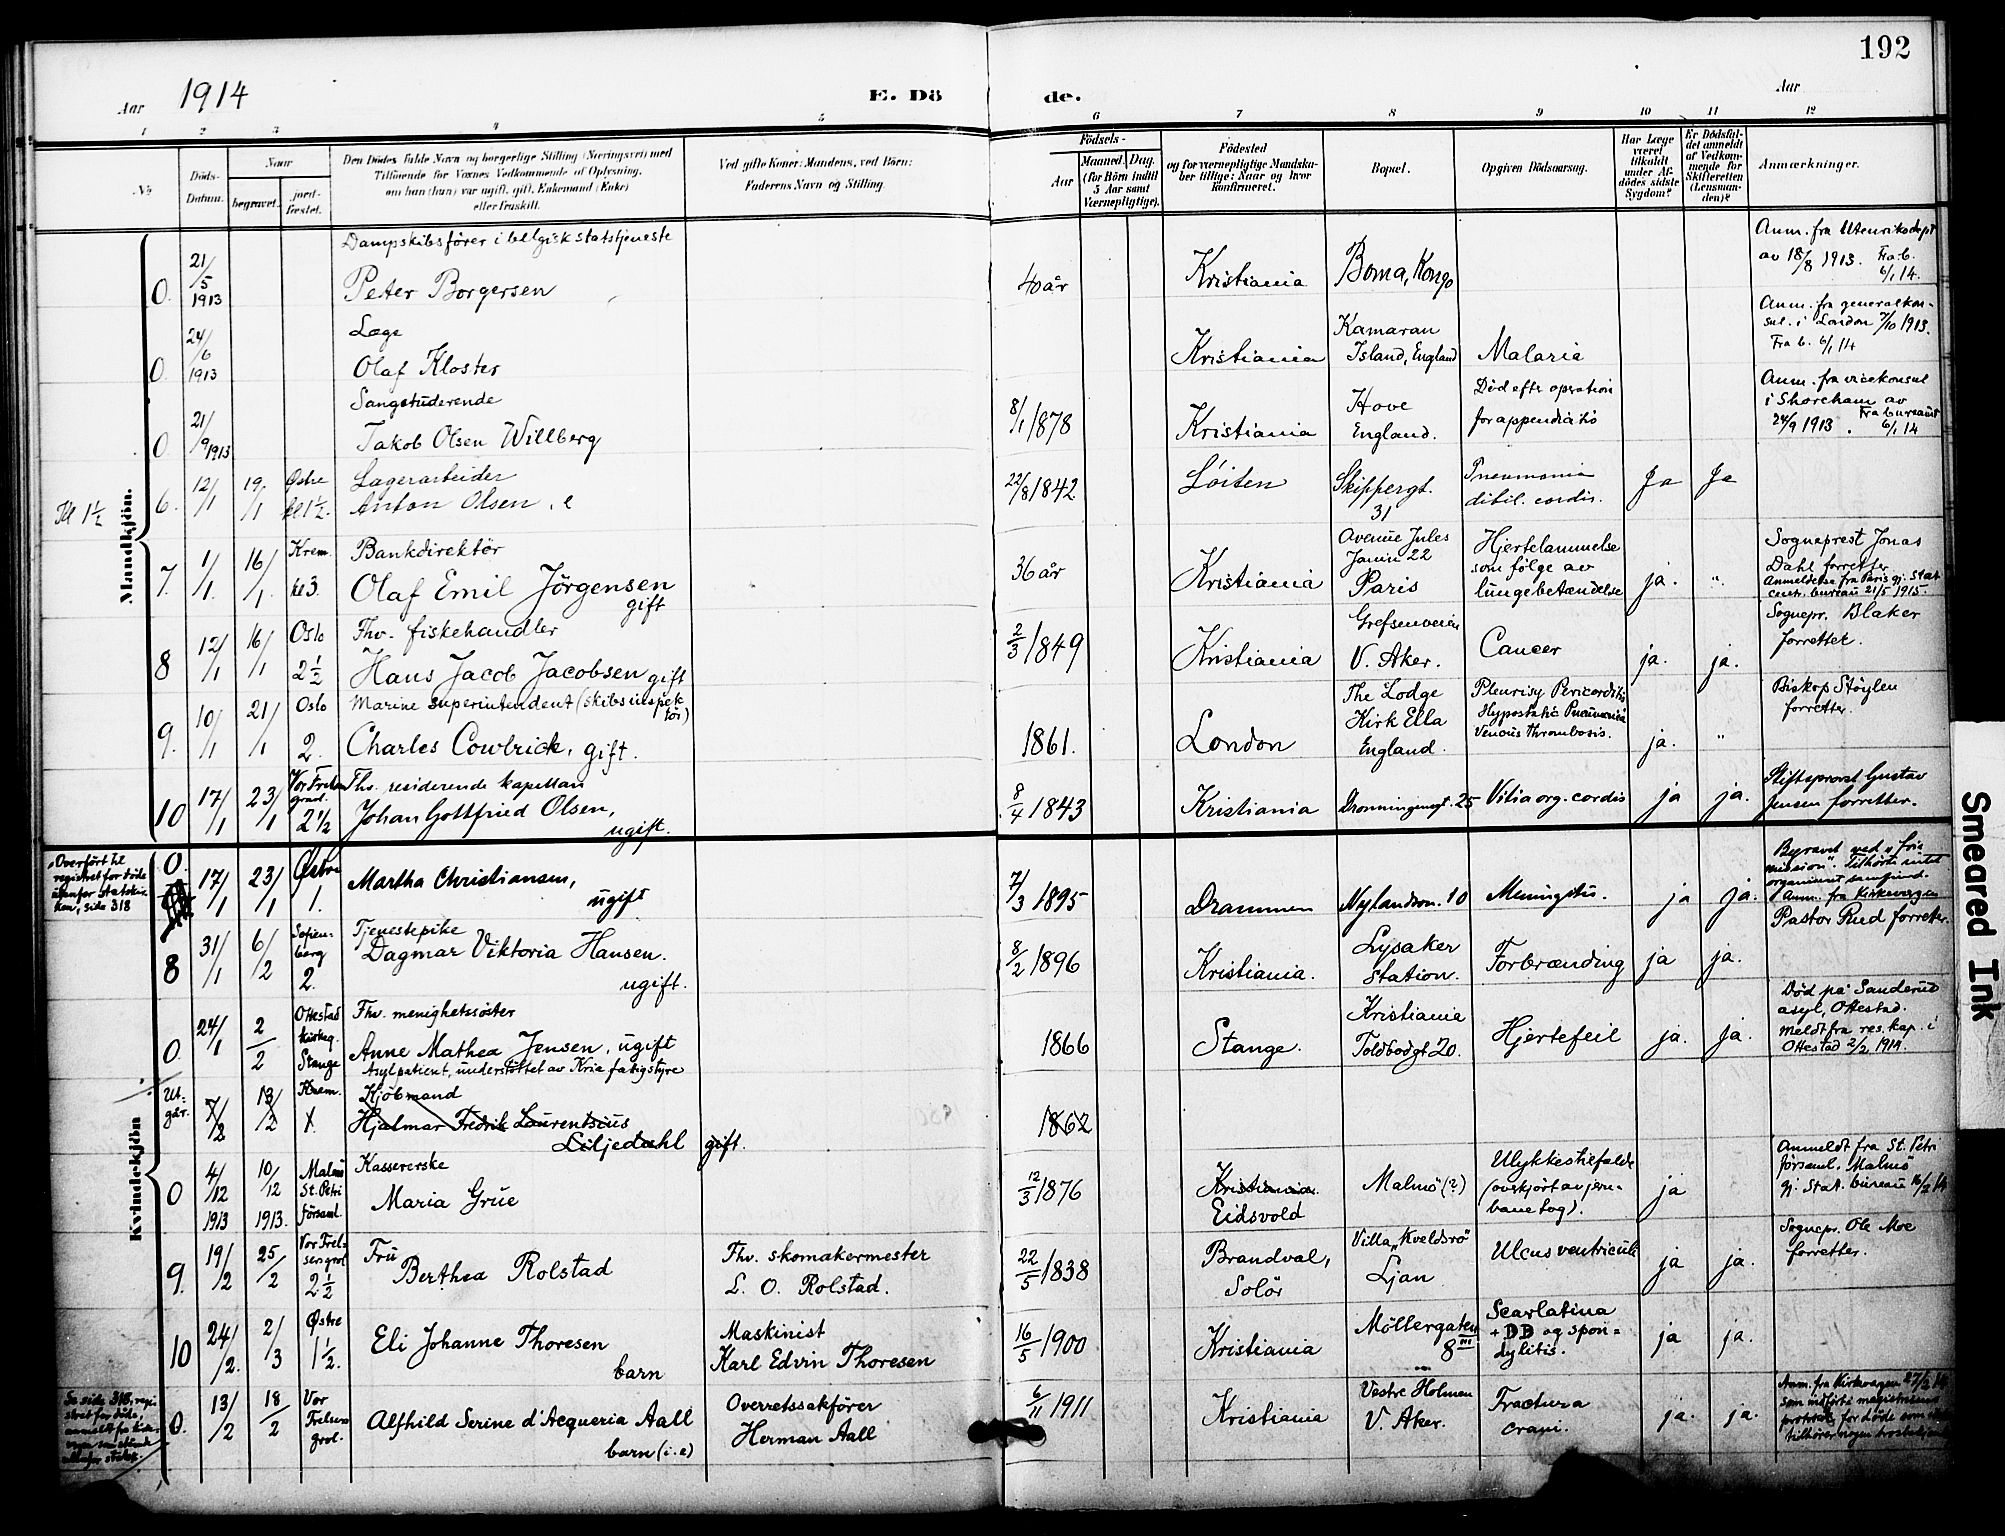 192
Aar 1914
E. Dö de.
Aar
1 2 3 4 5 6 7 8 9 10 11 12
No
Döds-Datum.
Naar
begravet.
jord-fæstet.
Den Dödes fulde Navn og borgerlige Stilling (Næringsvei) med
Tilföiende for Voxnes Vedkommende af Oplysning,
om han (hun) var ugift, gift, Enkemand (Enke)
eller fraskilt.
Ved gifte Koner: Mandens, ved Börn:
Faderens Navn og Stilling.
Födsels-
Aar
Maaned. Dag.
(for Börn indtil
5 Aar samt
Værnepligtige).
Födested
og for værnepligtige Mandska-
ber tillige: Naar og hvor
konfirmeret.
Bopæl.
Opgiven Dödsaarsag.
Har Læge
været
tilkaldt
under Af-
dödes sidste
Sygdom?
Er Dödsfal-
det anmeldt
af Vedkom-
mende for
Skifteretten
(Lensman-
den)?
Anmærkninger.
Mandkjön.
0. 21/5 1913
Dampskibsfører i belgisk statstjeneste
Peter Borgersen
40 år
Kristiania
Boma, Kongo
Anm. fra Utenriksdept
av 18/8 1913. Fra b.
6/1 14.
0. 24/6 1913
Læge
Olaf Kloster
Kristiania
Kamaran
Island, England
Malaria
Anm. fra generalkon-
sul. i London 7/10 1913.
Fra b. 6/1 14
0 21/9 1913
Sangstuderende
Jakob Olsen Willberg
8/1 1878
Kristiania
Hove
England.
Død eftr opration
for appendicitis
Anm. fra vicekonsul
i Shoreham av
24/9 1913. Fra bureauet
6/1 14
Kl 1½
6. 12/1 19/1 Østre kl 1½.
Lagerarbeider
Anton Olsen, e
22/8 1842
Löiten
Skippergt.
31
Pneumonia
dibil. cordis.
Ja Ja
7. 1/1. 16/1. Krem. kl 3.
Bankdirektör
Olaf Emil Jörgensen
gift
36 år
Kristiania
Avenue Jules
Janin 22
Paris
Hjertelammelse
som følge av
lungebetændelse
ja. "
Sogneprest Jonas
Dahl forretter
Anmeldelse fra Paris gj. Stat.
centr. bureau 21/5 1915.
8 12/1 16/1 Oslo 2½
Fhv. fiskehandler
Hans Jacob Jacobsen gift
2/3 1849
Kristiania
Grefsenveien
V. Aker.
Cancer
ja. ja.
Sognepr. Blaker
forretter.
9. 10/1 21/1 Oslo 2.
Marine superintendent (skibsinspek-
tör)
Charles Cowlrick, gift.
1861.
London
The Lodge
Kirk Ella
England.
Pleurisy Pericorditis
Hypostatic Pneumonia
Venous thrombosis.
ja. "
Biskop Støylen
forretter.
10 17/1 23/1 Vor Frelsers grav. 2½
Fhv. residerende kapellan
Johan Gottfried Olsen,
ugift.
8/4 1843
Kristiania
Dronningensgt. 25
Vitia org. cordis
ja ja.
Stiftsprovst Gustav
Jensen forretter.
Kvindekjön
Overført til
registret for døde
utenfor statskir-
ken, side 318
0. 17/1 23/1 Østre 1.
Martha Christiansen,
ugift
7/3 1895
Drammen
Nylandsvn. 10
Meningitis.
ja ja.
Begravet ved "frie
mission". Tilhörte intet
organiseret samfund.
Anm. fra Kirkevergen
8 31/1 6/2 Sofien-
berg 2.
Tjenestepike
Dagmar Viktoria Hansen.
ugift.
8/2 1896
Kristiania.
Lysaker
Station.
Forbrænding
ja ja.
Pastor Rud forretter.
0. 24/1 2/2 Ottestad
kirkeg.
Stange
Fhv. menighetssöster
Anne Mathea Jensen, ugift
Asylpatient, understøttet av Kria fattigstyre
1866
Stange.
Kristiania
Toldbodgt 20.
Hjertefeil
ja. ja.
Död på Sanderud
asyl, Ottestad.
Meldt fra res. kap. i
Ottestad 2/2 1914.
Ut-
går. 7/2 13/2 Krem. 1.
Kjöbmand
Hjalmar Fredrik Laurentsius
Liljedahl gift.
1862
0 4/12 1913 10/12 1913. Malmö
St. Petri
församl.
Kassererske
Maria Grue
12/3 1876
Kristiania.
Eidsvold
Malmö (?)
Ulykkestilfælde
(overkjört av jern-
bane tog).
ja –
Anmeldt fra St. Petri
församl. Malmö
gj. Stat. bureau 16/2 14
9. 19/2 25/2 Vor Frel-
sers grvl 2½
Fru
Berthea Rolstad
Fhv. skomakermester
L. O. Rolstad.
22/5 1838
Brandval,
Solör
Villa "Kveldsro"
Ljan
Ulcus ventriculi
ja ja.
Sognepr. Ole Moe
forretter.
10 24/2. 2/3 Østre 1½.
Eli Johanne Thoresen
barn
Maskinist
Karl Edvin Thoresen
16/5 1900
Kristiania
Möllergaten
8 III
Scarlatina
+ DD og spon-
dylitis.
ja ja.
Se side 318, regi-
stret for døde,
0. 13/2 18/2 Vor
Frelsers
grvl.
Alfhild Serine d'Acqueria Aall
barn (i.e)
Overretssakförer
Herman Aall
6/11 1911
Kristiania
Vestre Holmen
V. Aker.
Fractura
crani.
ja. ja.
Anm. fra Kirkevergen 27/2 14
som indförte magistratens
protokol for döde som ikke
tilhörer nogen
Smeared Ink